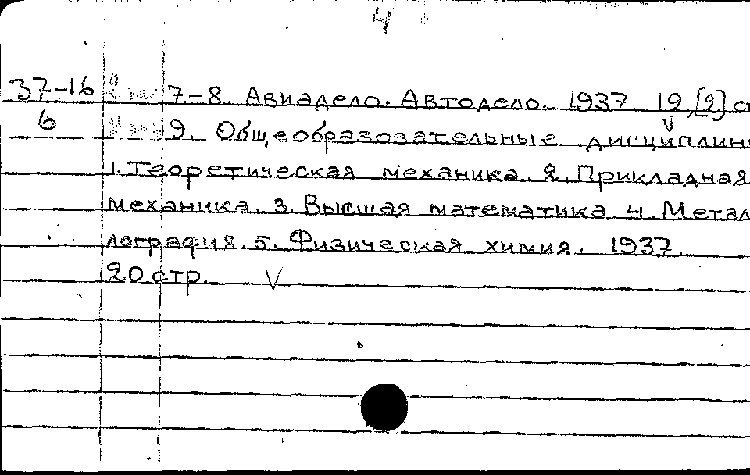 4
37-16 7-8. Авиадело. Автодело. 1937 19,[2] с
6 9. Общеобразовательные дисциплин
1. Теоретическая механика. 2. Прикладная
механика. 3. Высшая математика 4. Метал
лография. 5. Физическая химия. 1937.
20 стр. V